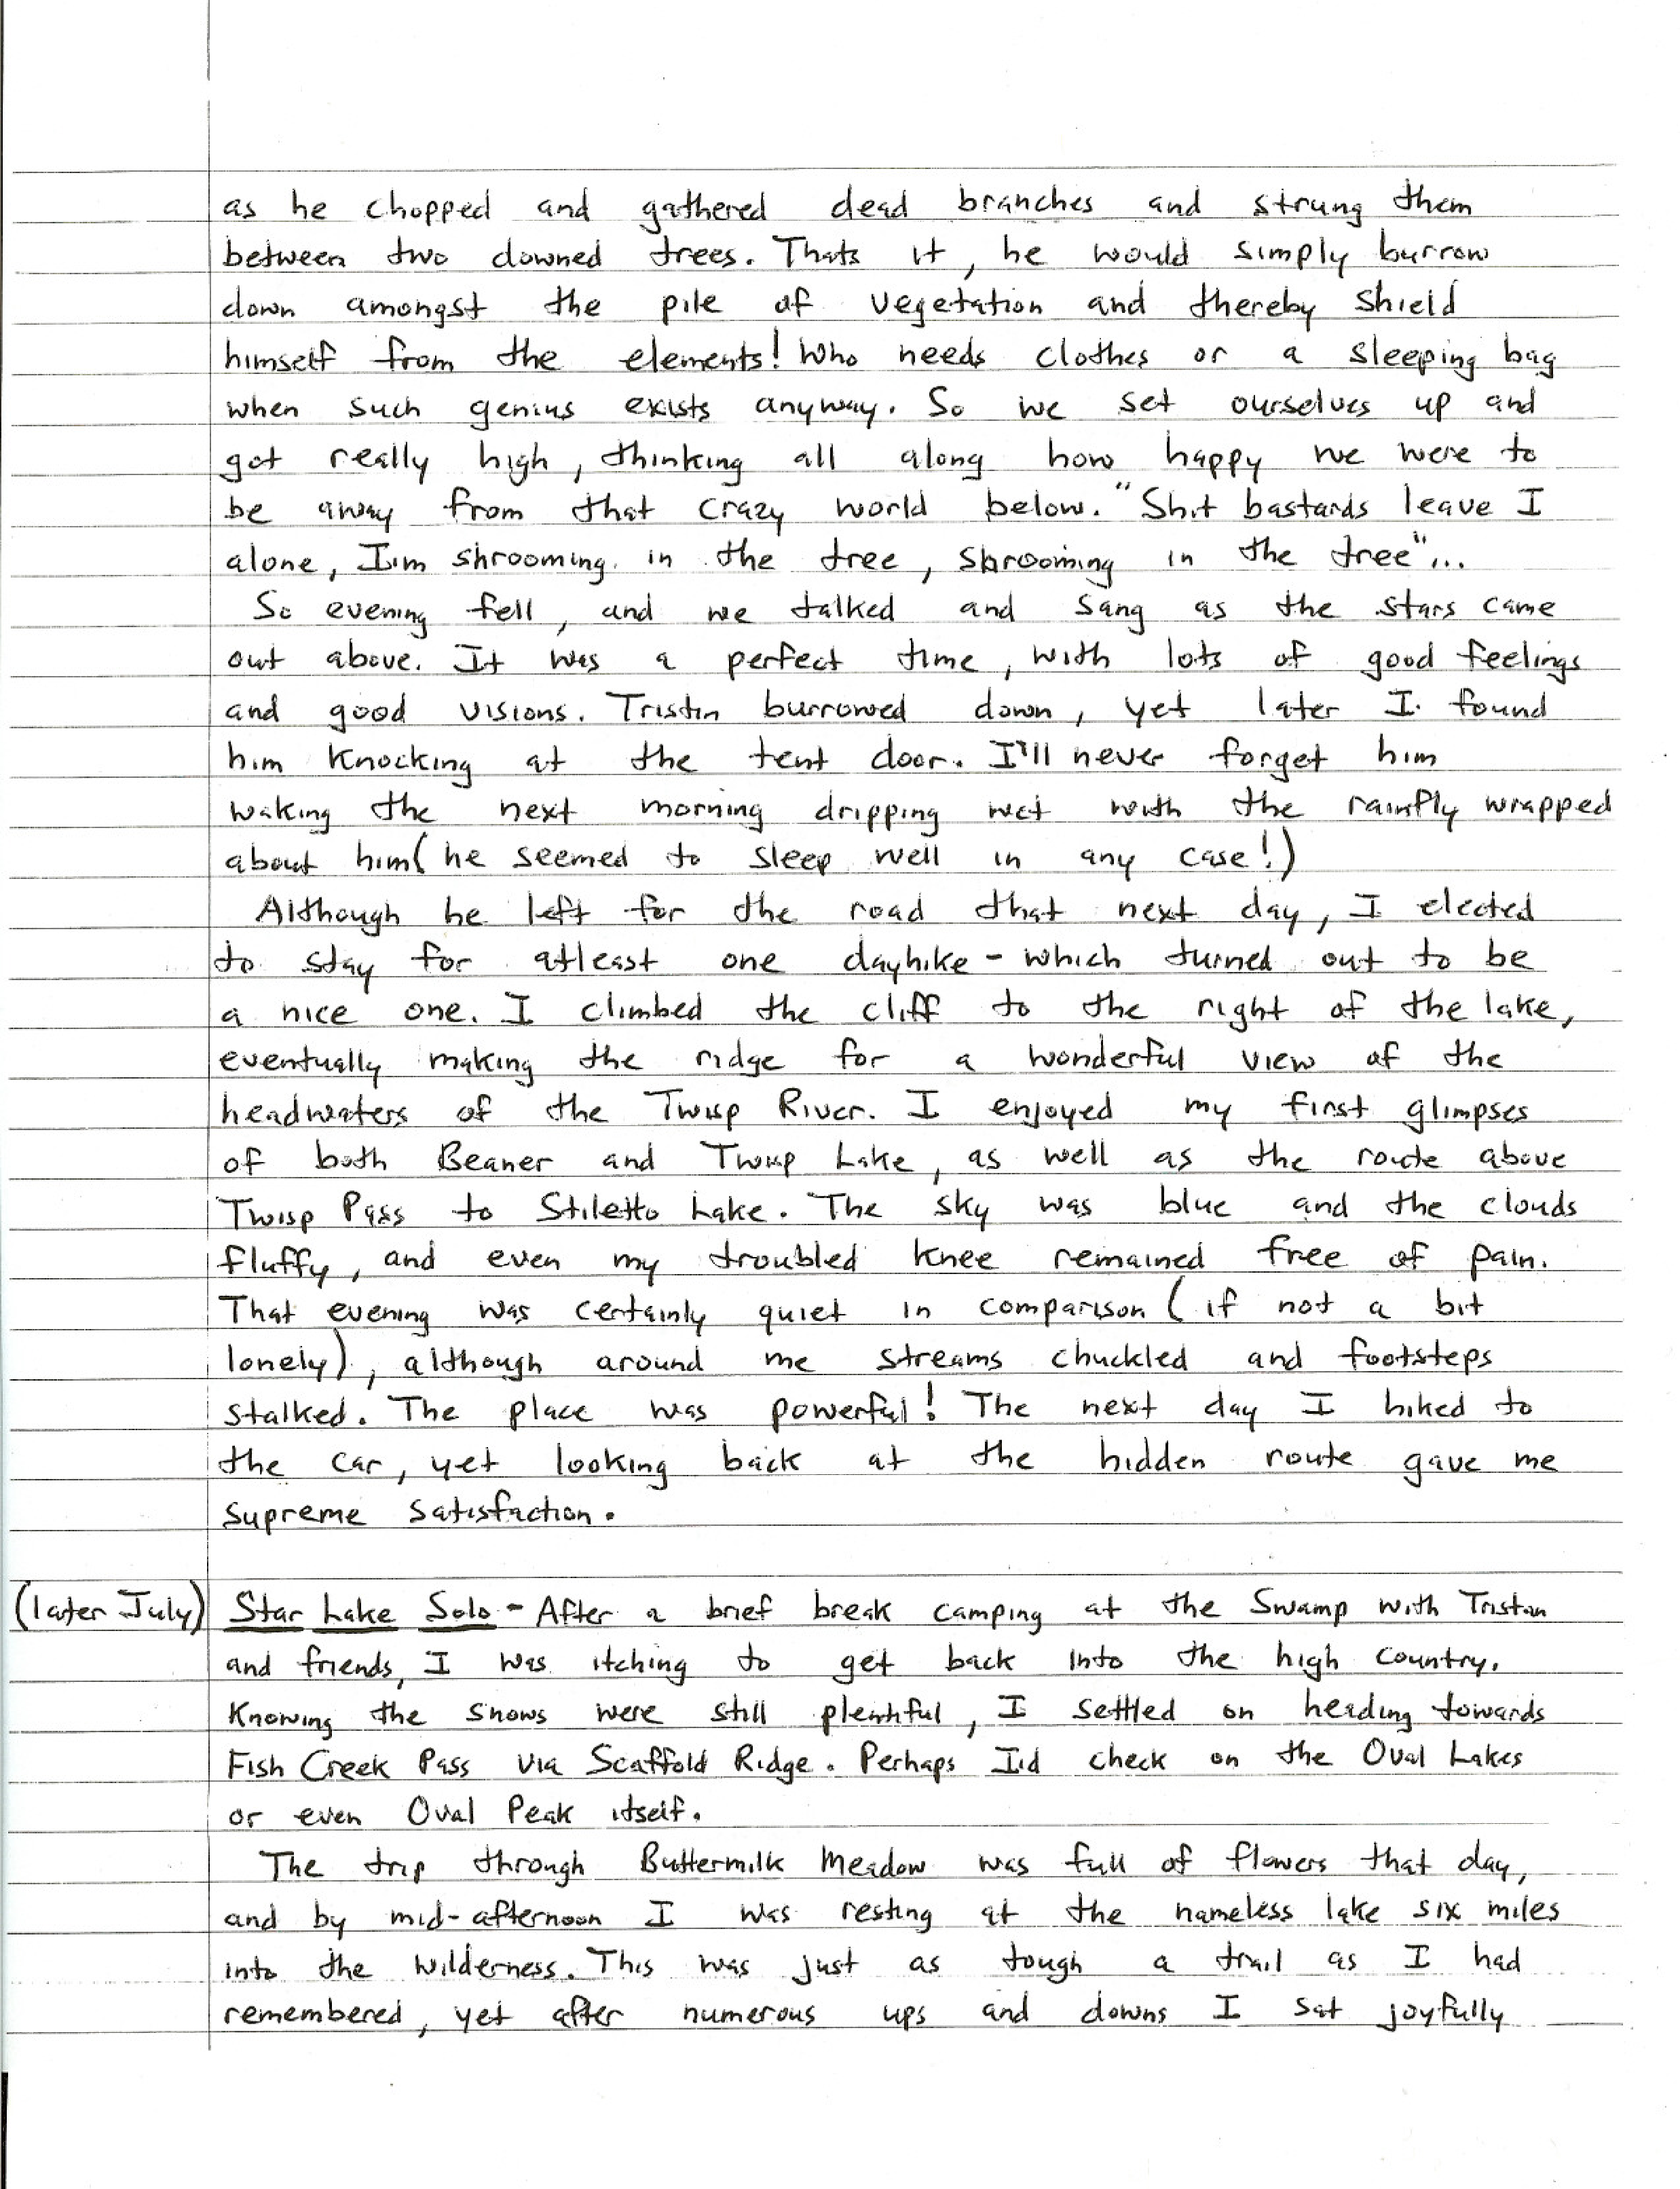 as he chopped and gathered dead branches and strung them
between two downed trees. Thats it, he would simply burrow
down amongst the pile of vegetation and thereby shield
himself from the elements! Who needs clothes or a sleeping bag
when such genius exists anyway. So we set ourselves up and
got really high, thinking all along how happy we were to
be away from that crazy world below. "Shit bastards leave I
alone, I'm shrooming in the tree, shrooming in the tree"...
So evening fell, and we talked and sang as the stars came
out above. It was a perfect time, with lots of good feelings
and good visions. Tristin burrowed down, yet later I found
him knocking at the tent door. I'll never forget him
waking the next morning dripping wet with the rainfly wrapped
about him (he seemed to sleep well in any case!)
Although he left for the road that next day, I elected
to stay for atleast one dayhike - which turned out to be
a nice one. I climbed the cliff to the right of the lake,
eventually making the ridge for a wonderful view of the
headwaters of the Twisp River. I enjoyed my first glimpses
of both Beaner and Twisp Lake, as well as the route above
Twisp Pass to Stiletto Lake. The sky was blue and the clouds
fluffy, and even my troubled knee remained free of pain.
That evening was certainly quiet in comparison (if not a bit
lonely), although around me streams chuckled and footsteps
stalked. The place was powerful! The next day I hiked to
the car, yet looking back at the hidden route gave me
supreme satisfaction.
(later July) Star Lake Solo - After a brief break camping at the Swamp with Tristan
and friends, I was itching to get back into the high country.
Knowing the snows were still plentiful, I settled on heading towards
Fish Creek Pass via Scaffold Ridge. Perhaps I'd check on the Oval Lakes
or even Oval Peak itself.
The trip through Buttermilk Meadow was full of flowers that day,
and by mid-afternoon I was resting at the nameless lake six miles
into the wilderness. This was just as tough a trail as I had
remembered, yet after numerous ups and downs I sat joyfully